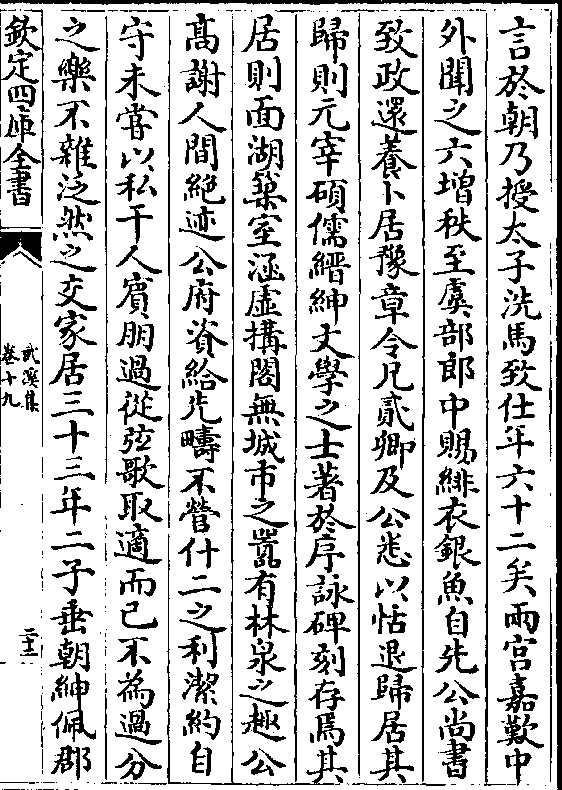 言於朝乃授太子洗馬致仕年六十二矣兩宫嘉歎中
外聞之六增秩至虞部郎中賜緋衣銀魚自先公尚書
致政還養卜居豫章令兄貳卿及公悉以恬退歸居其
歸則元宰碩儒縉紳文學之士著於序詠碑刻存焉其
居則面湖築室涵虛搆閣無城市之囂有林泉之趣公
髙謝人間絶迹公府資給先疇不營什二之利潔約自
守未嘗以私干人賓朋過從弦歌取適而已不為過分
之樂不雜泛然之交家居三十三年二子垂朝紳佩郡
欽定四庫全書
武溪集
卷十九
二十三